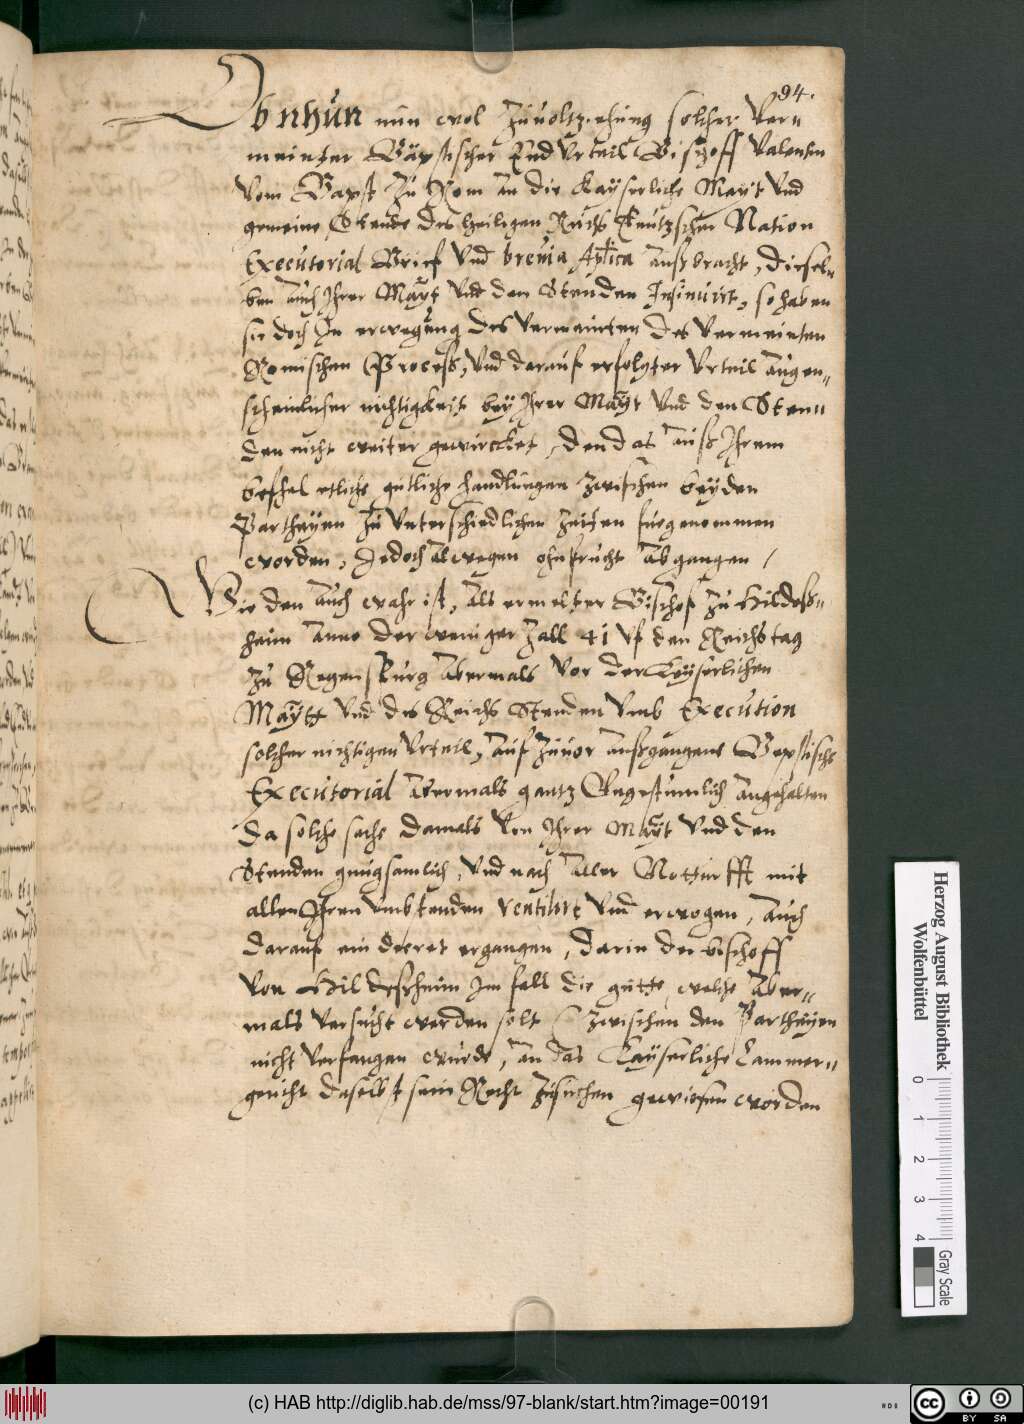 94.
Ob nhun nun wol zuuoltziehung solcher ver¬
meinter Bäpstischer End Urteil Bischoff Valentin
vom Bapst zu Rom an die Kayserliche Mayt vnd
gemeine Stende des heiligen Reichs Teutzscher Nation
Executorial Brief vnd breuia Aplica außbracht, diesel¬
ben auch Ihrer Mayt vnd den Stenden Insinuirt, so haben
sie doch In erwegung des vermainten des vermeinten
Romischen Process, vnd darauf erfolgter Urteil augen¬
scheinlicher nichtigkeit bey Ihrer Mayt vnd den Sten¬
den nicht weiter gewircket, den das auß Ihrem
befhel etliche gutliche handlungen zwischen beyden
Partheyen zu vnterschiedlichen Zeiten furgenommen
worden, Jedoch alwegen ohn frucht abgangen /
Wie den auch wahr ist, als ermelter Bischof zu Hildeß¬
heim Anno der weniger Zall 41 vf den Reichstag
zu Regenspurg abermals vor der Keyserlichen
Maytt vnd des Reichs Stenden vmb Execution
solcher nichtigen Urteil, auf zuuor außgangene Bepstische
Executorial abermals gantz Ungestumlich angehalten
da solche sache damals von Ihrer Mayt vnd den
Stenden gnugsamlich, vnd nach aller Notturfft mit
allen Ihren vmbstenden ventilirt vnd erwogen, auch
darauf ein decret ergangen, darin der bischoff
von Hildesheim Im fall die gutte, welche aber¬
mals versucht werden solt zwischen den Partheyen
nicht verfangen wurde, an das Kayserliche Cammer¬
gericht daselbst sein Recht zusuchen gewiesen worden
Herzog August Bibliothek
Wolfenbüttel
0 1 2 3 4
Gray Scale
(c) HAB http://diglib.hab.de/mss/97-blank/start.htm?image=00191
cc BY SA